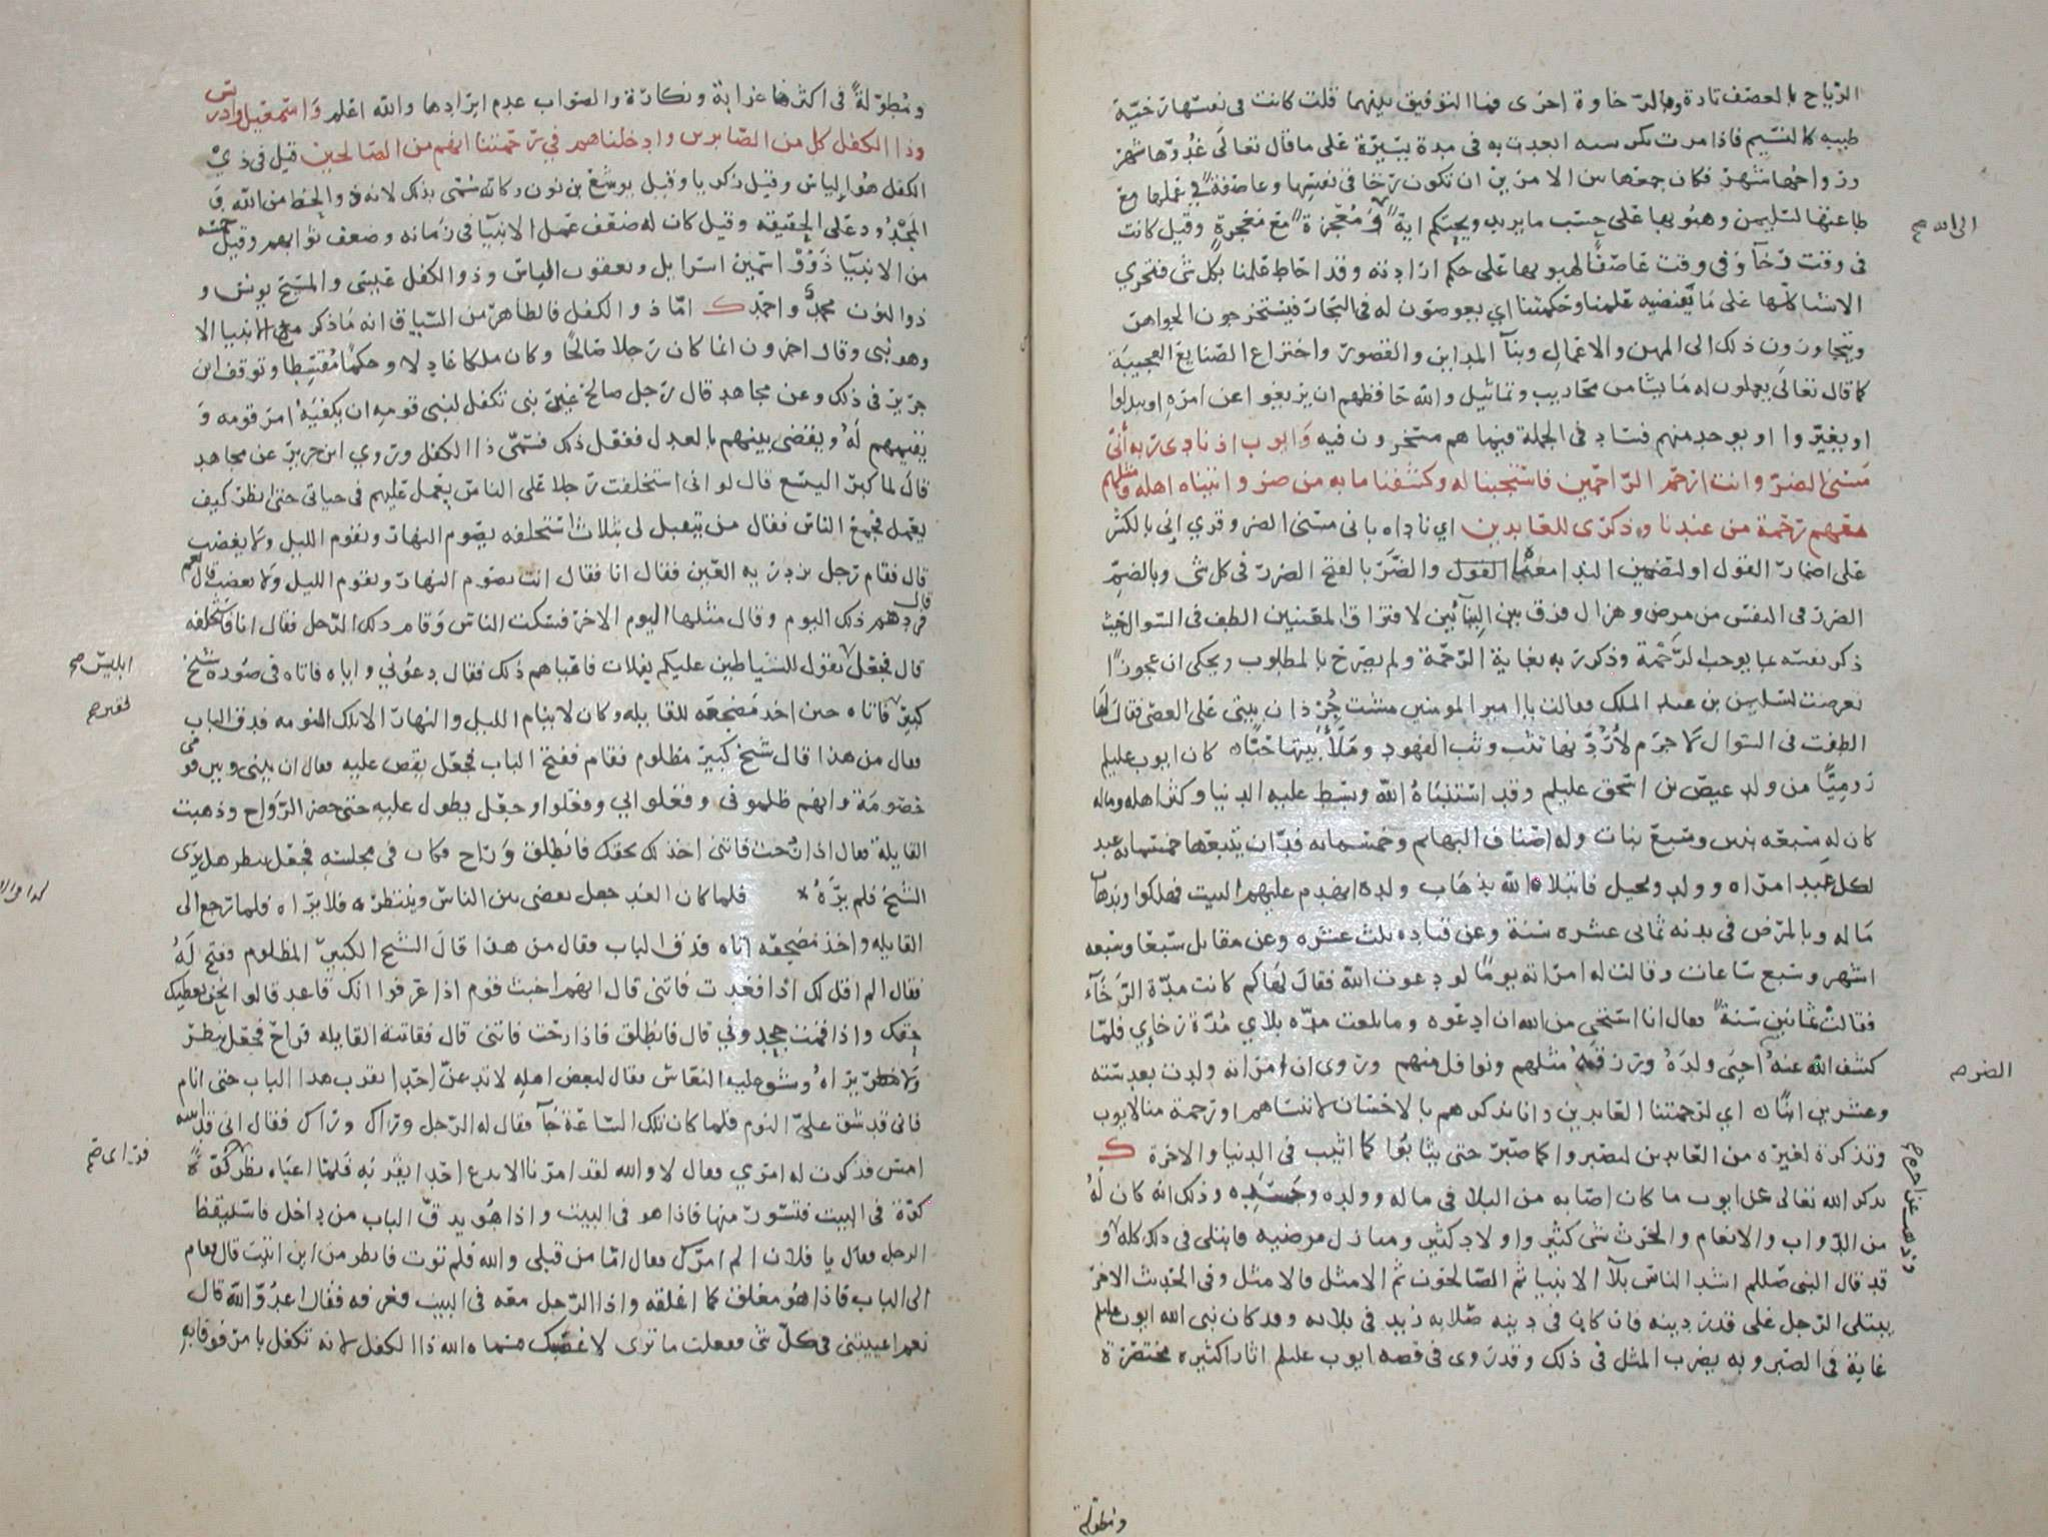 الرياح بالعصف تارة وبالرخاوة اخرى فما التوفيق بينهما قلت كانت في نفسها رخيّة
طيبه كالنسيم فاذا مرت بكرسيه ابعدت به في مدة يسيرة على ما قال تعالى غدوّها شهر
ورواحها شهر فكان جمعها بين الامرين ان تكون رخا في نفسها وعاصفة في عملها مع
طاعتها لسليمن وهبوبها على حسب ما يريد ويحتكم اية في معجزة مع معجزة وقيل كانت
في وقت رخآ وفي وقت عاصفا لهبوبها على حكم ارادته وقد احاط علمنا بكل شي فتجري
الاشيا كلها على ما يقتضيه علمنا وحكمتنا اي يغوصون له في البحار فيستخرجون الجواهر
ويتجاوزون ذلك الى المهن والاعمال وبنآ المداين والقصور واختراع الصنايع العجيبة
كما قال تعالى يعملون له ما يشا من محاريب وتماثيل والله حافظهم ان يزيغوا عن امره او يبدلوا
او يغيّروا او يوجد منهم فساد في الجملة فيما هم مسخرون فيه وايوب اذ نادى ربه أنّي
مسّني الضرّ وانت ارحم الراحمين فاستجبنا له وكشفنا ما به من ضر واتيناه اهله ومثلهم
معهم رحمة من عندنا وذكرى للعابدين اي ناداه باني مسني الضر وقري اني بالكسر
على اضمار القول او لتضمين الندا معنى القول والضَرّ بالفتح الضرر في كل شي وبالضمّ
الضرر في النفس من مرض وهزال فرق بين البنائين لافتراق المعنيين الطف في السوال حيث
ذكر نفسه بما يوجب الرَّحْمة وذكر ربه بغاية الرّحمة ولم يصرّح بالمطلوب ويحكى ان عجوزًا
تعرضت لسليمن بن عبد الملك فقالت يا امير المومنين مشت جرذان بيتي على العصي فقال لها
الطفت في السوال لا جرم لأردّنها تثب وثب الفهود وملأ بيتها حبّا كان ايوب عليلم
روميّا من ولد عيص بن اسحق عليلم وقد استنبأه الله وبسط عليه الدنيا وكثر اهله وماله
كان له سبعه بنين وسبع بنات وله اصناف البهايم وخمسمايه فدّان يتبعها خمسمايه عبد
لكل عبد امراه وولد ونخيل فابتلاه الله بذهاب ولده انهدم عليهم البيت فهلكوا وبذهآ
ماله وبالمرض في بدنه ثماني عشره سنة وعن قتاده ثلث عشره وعن مقاتل سبعا وسبعه
اشهر وسبع ساعات وقالت له امراته يومًا لو دعوت الله فقال لها كم كانت مدّة الرخآء
فقالت ثمانين سنة فقال انا استحي من الله ان ادعوه وما بلغت مدّه بلاي مدّة رخاءِي فلمّا
كشف الله عنه احيى ولدَهُ ورزقه مثلهم ونوافل منهم وروى ان امراته ولدت بعد سته
وعشرين ابنًا اي لرحمتنا العابدين وانا نذكرهم بالاحسان لا ننساهم او رحمة منا لايوب
وتذكرة لغيره من العابدين ليصبروا كما صبر حتى يثابوا كما اثيب في الدنيا والاخرة ك
يذكر الله تعالى عن ايوب ما كان اصابه من البلا في ماله وولده وجسده وذلك انه كان لهُ
من الدواب والانعام والحرث شي كثير واولاد كثير ومنازل مرضيه فابتلي في ذلك كله و
قد قال النبي صللم اشد الناس بلآ الانبيا ثم الصالحون ثم الامثل فالامثل وفي الحديث الاخر
يبتلى الرجل على قدر دينه فان كان في دينه صلابه زيد في بلائه وقد كان نبي الله ايوب عليلم
غاية في الصبر وبه يضرب المثل في ذلك وقد روى في قصه ايوب عليلم اثار كثيره مختصرة
الى الله صح
الضر صح
وذهب عنا صح
ومطولة
ومُطوّلةً في اكثرها غرابة ونكارة والصواب عدم ايرادها والله اعلم وَاسمعيل وادريس
وذا الكفل كل من الصّابرين وادخلناهم في رحمتنا انهم من الصالحين قيل في ذي
الكفل هو الياس وقيل زكريا وقيل يوشع بن نون وكانه سُمّي بذلك لانه ذو الحظ من الله و
المجدُود على الحقيقه وقيل كان له ضعف عمل الانبيآ في زمانه وضعف ثوابهم وقيل خمسه
من الانبيآ ذَوُوْ اسمين اسرايل ويعقوب الياس وذو الكفل عيسى والمسيح يونس و
ذو النون محمدٌ واحمد ك امّا ذو الكفل فالظاهر من السياق انه ما ذكر مع الانبيا الا
وهو نبي وقال اخرون انما كان رجلا صالحًا وكان ملكا عادلا وحكمًا مُقسِطا وتوقف ابن
جرير في ذلك وعن مجاهد قال رجل صالح غير نبي تكفل لنبي قومه ان يكفيَهُ امر قومه وَ
يقيمهم لهُ ويقضي بينهم بالعدل ففعل ذلك فسمّي ذا الكفل وروي ابن جرير عن مجاهد
قال لما كبر اليسع قال لو اني استخلفت رجلا على الناس يعمل عليهم في حياتي حتى انظر كيف
يعمل فجمع الناس فقال من يتقبل لي بثلاث استخلفه يصوم النهار ويقوم الليل ولا يغضب
قال فقام رجل تزدريه العين فقال انا فقال انت تصوم النهار وتقوم الليل ولا تغضب قال نعم قال
فردهم ذلك اليوم وقال مثلها اليوم الاخر فسكت الناس وَقام ذلك الرّجل فقال انا فاستخلفه
قال فجعل يقول للشياطين عليكم بفلان فاعياهم ذلك فقال دعوني واياه فاتاه في صُورة شيخ
كبير فاتاه حين اخذ مَضجعَه للقايله وكان لا ينام الليل والنهار الا تلك النومه فدق الباب
فقال من هذا قال شيخ كبير مظلوم فقام ففتح الباب فجعل يقص عليه فقال ان بيني وبين قومي
خصومَة وانهم ظلموني وفعلوا بي وفعلوا وجعل يطول عليه حتى حضر الرّواح وذهبت
القايلة فقال اذا رُحت فاتني اخذ لك بحقك فانطلق وَراح فكان في مجلسه فجعل ينظر هل يرى
الشيخ فلم يرَهُ * فلما كان الغد جعل يقضي بين الناس وينتظره فلا يراه فلما رجع الى
القايله واخذ مضجعَه اتاه فدق الباب فقال من هذا قالَ الشيخ الكبير المظلوم ففتح لَهُ
فقال الم اقل لك اذا قعدت فاتني قال انهم اخبث قوم اذا عرفوا انك قاعد قالوا نحن نعطيك
حقك واذا قمت جحدوني قال فانطلق فاذا رحت فاتني قال ففاتته القايله فراح فجعل ينظر
ولا يراهُ وشق عليه النعاس فقال لبعض اهله لا تدعنّ احدا يقرب هذا الباب حتى انام
فاني قد شق عليّ النوم فلما كان تلك السّاعَة جآ فقال له الرّجل وراك وراك فقال اني قد اتيته
امس فذكرت له امري فقال لا والله لقد امرنا الا ندع احدا يقربه فلمّا اعياه نظر
كوّة في البيت فتسوّر منها فاذا هو في البيت واذا هُو يدقّ الباب من داخل فاستيقظ
الرجل فقال يا فلان الم امرك فقال امّا من قبلي والله فلم تؤت فانظر من اين اتيت قال فقام
الى الباب فاذا هُو مغلق كما اغلقه واذا الرّجل معَه في البيت فعَرفه فقال اعدُوّ الله قال
نعم اعييتني في كلّ شي ففعلت ما ترى لاغضبك فسماه الله ذا الكفل لانه تكفل بامر فوفا به
ابليس صح
الفقير صح
فراى صح